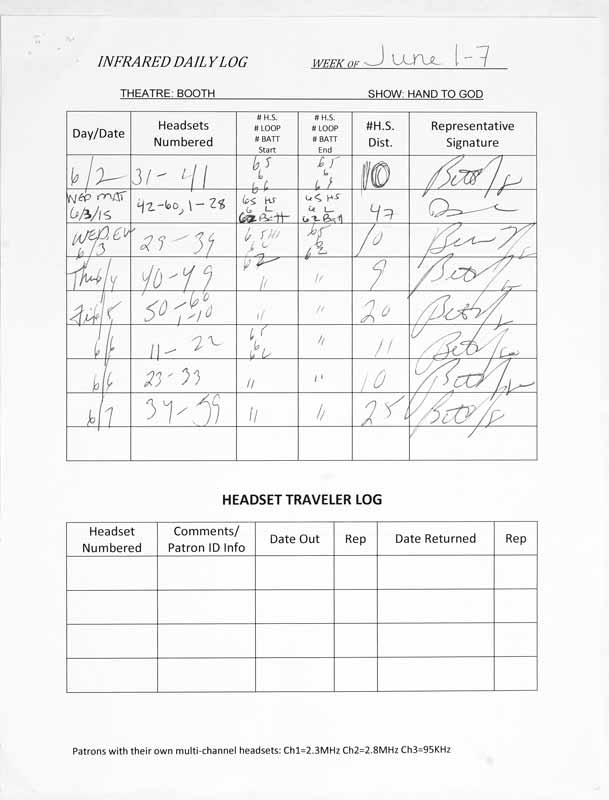 INFRARED DAILY LOG WEEK OF June 1-7
THEATRE: BOOTH SHOW: HAND TO GOD
Day/Date Headsets Numbered # H.S. # LOOP # BATT Start # H.S. # LOOP # BATT End #H.S. Dist. Representative Signature
6/2 31-41 65 6 65 6 10
WED MAT 6/3/15 42-60, 1-28 65 HS 6 L 62 Batt 65 HS 6 L 62 Batt 47
WED. EV 6/3 29-39 65 HS 62 65 62 10
Thu 6/4 40-49 " " 9
Fri 6/5 50-60 1-10 " " 20
6/6 11-22 65 " 11
6/6 23-33 " " 10
6/7 34-59 " " 25
HEADSET TRAVELER LOG
Headset Numbered Comments/ Patron ID Info Date Out Rep Date Returned Rep
Patrons with their own multi-channel headsets: Ch1=2.3MHz Ch2=2.8MHz Ch3=95KHz